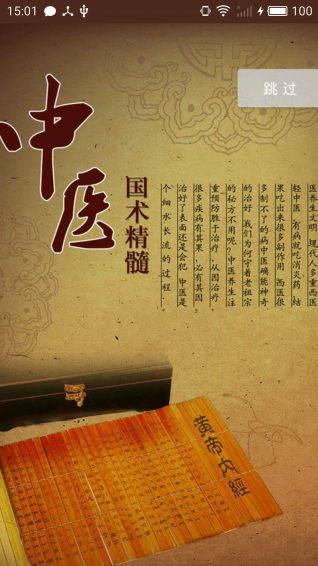 15:01
100
跳过
中医
国术精髓
医养生文明 现代人多重西医
轻中医 有病就吃消炎药 结
果吃出来很多副作用 西医很
多制不了的病中医确能神奇
的治好 我们为何守着老祖宗
的秘方不用呢? 中医养生注
重预防胜于治疗 从因治疗
很多疾病有其果 必有其因
治好了表面还是会犯 中医是
个细水长流的过程
黄帝内經